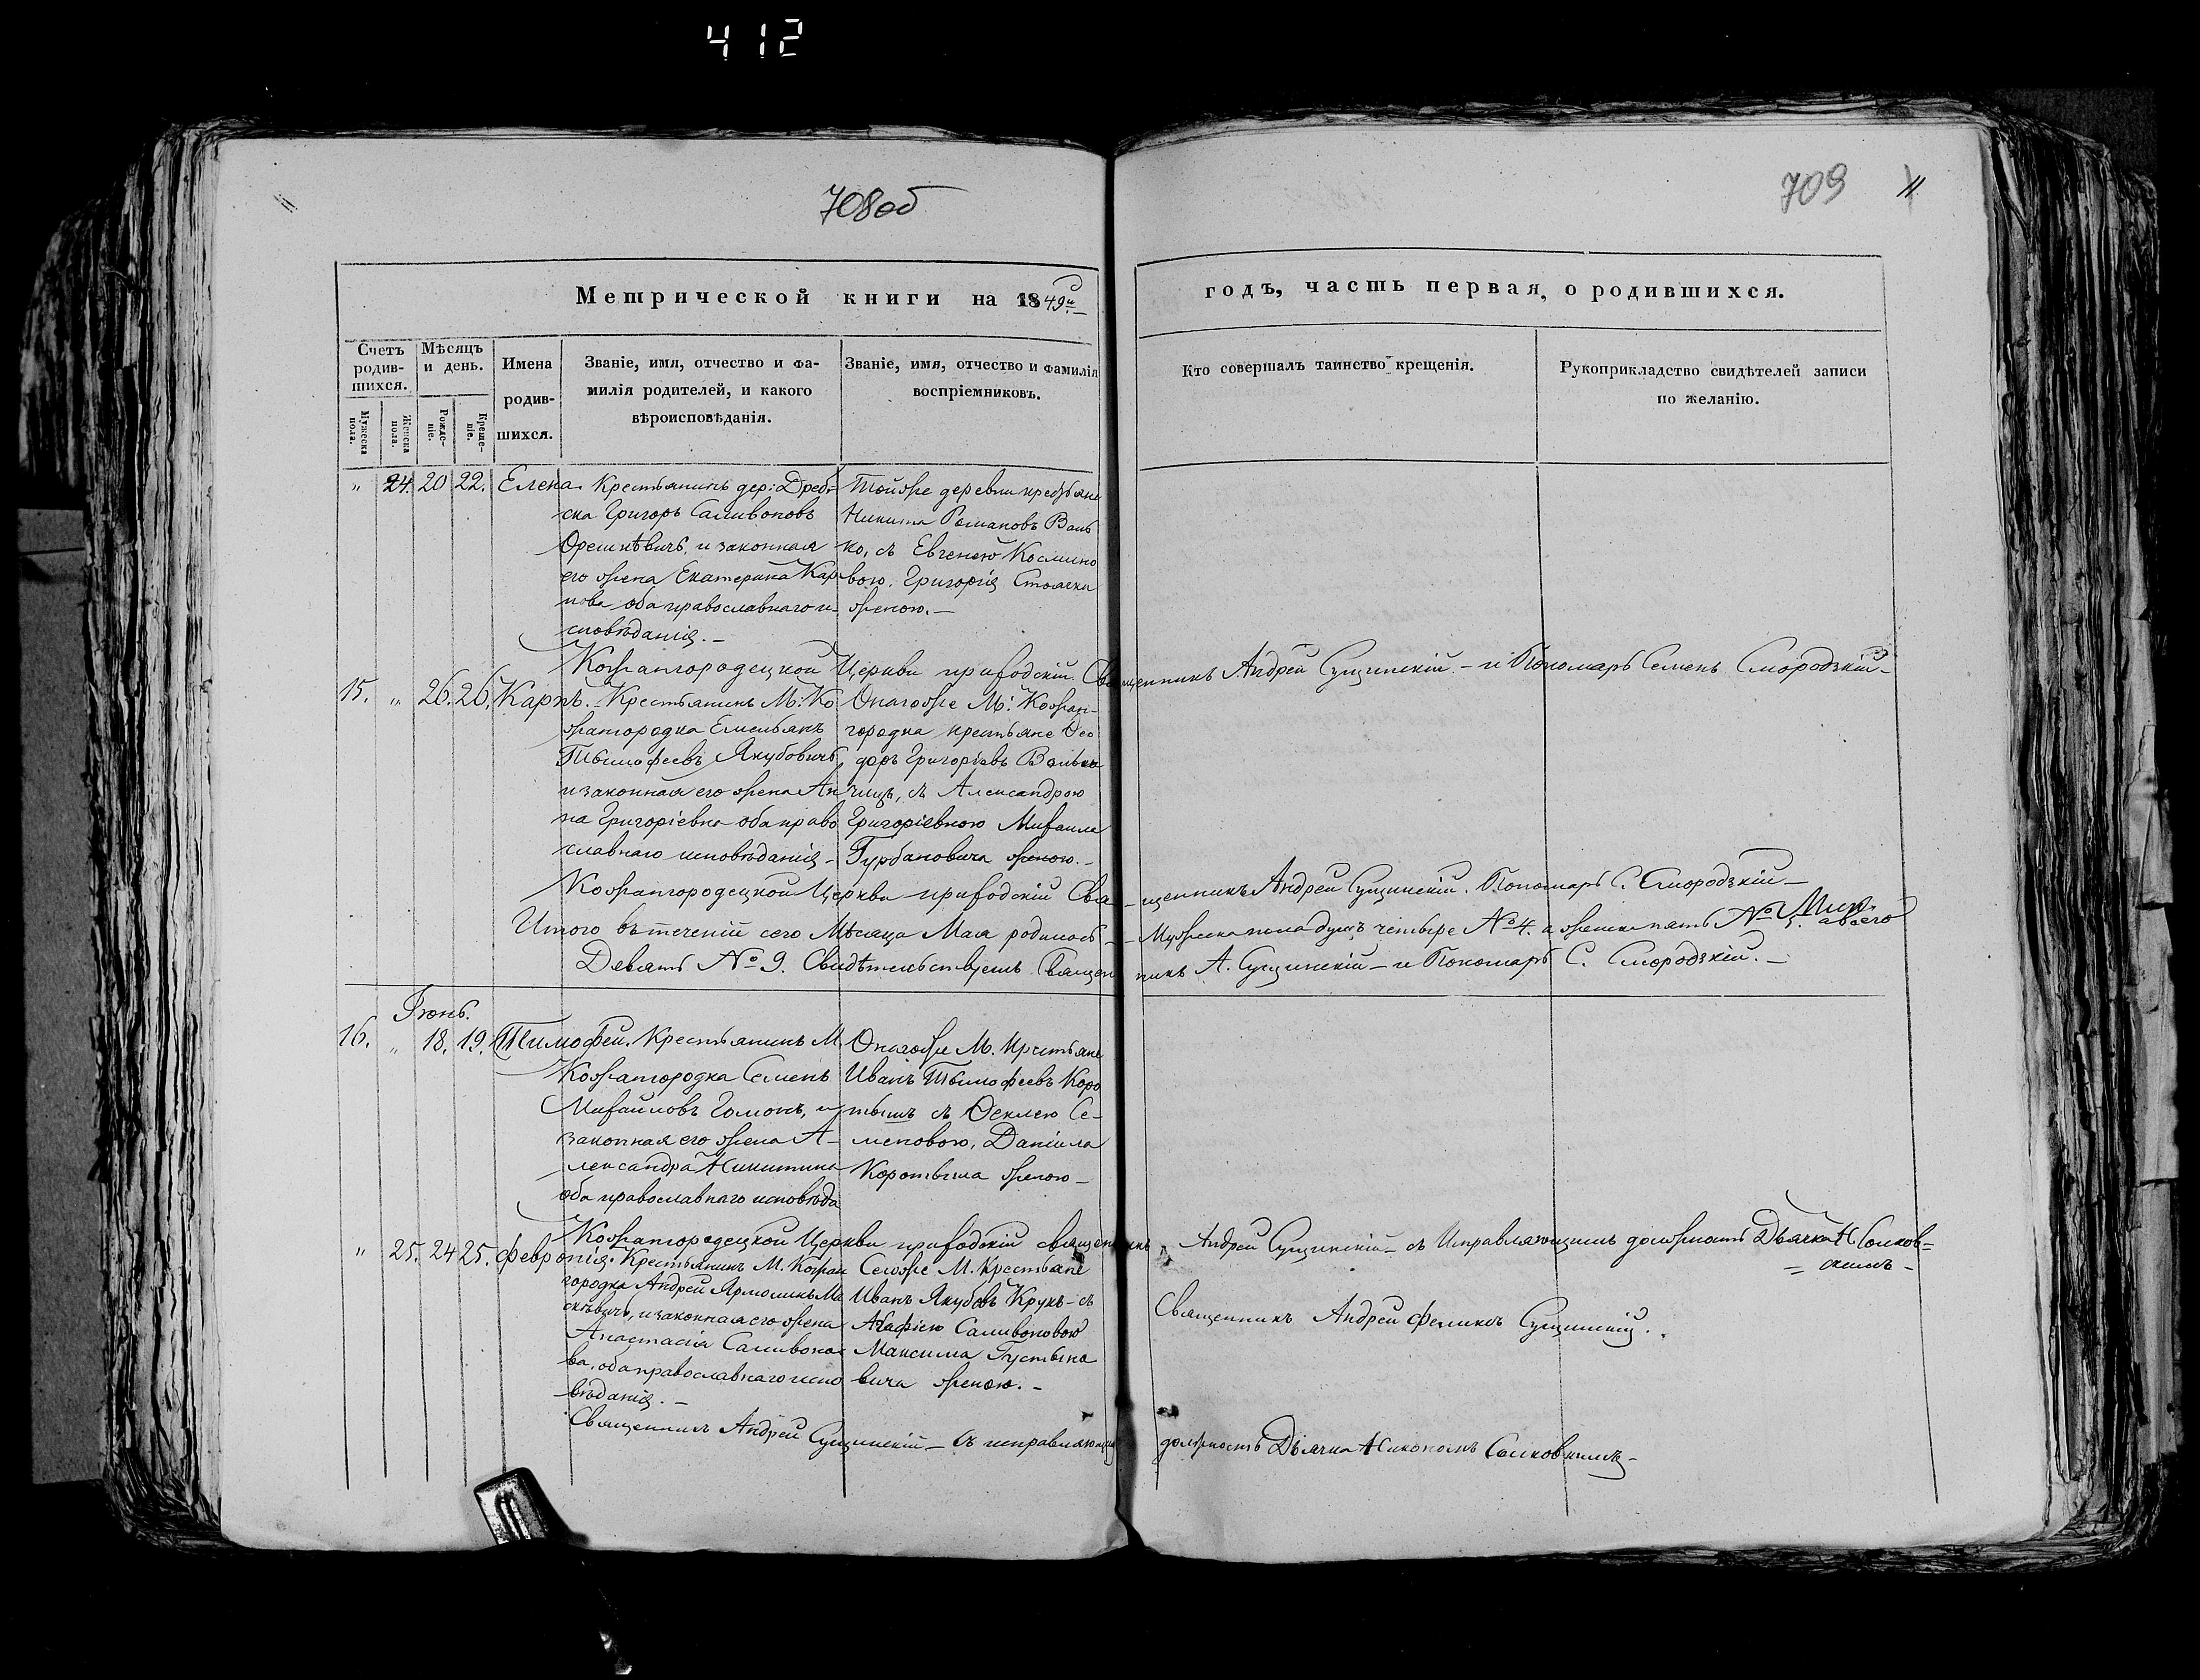 412
708об
709
11
Метрической книги на 1849й
годъ, часть первая, о родившихся.
Счетъ родив-шихся.
Мужеска пола.
Женска пола.
Мѣсяцъ и день.
Рожде-ніе.
Креще-ніе.
Имена
родив-
шихся.
Званіе, имя, отчество и фа-
милія родителей, и какого
вѣроисповѣданія.
Званіе, имя, отчество и фамилія
воспріемниковъ.
Кто совершалъ таинство крещенія.
Рукоприкладство свидѣтелей записи
по желанію.
" 24. 20 22. Елена.
Крестьянинъ дер: Дреб-
ска Григоръ Саливоновъ
Орешкѣвичъ, и законная
его жена Екатерина Кар
пова оба православнаго и-
сповѣданія. –
Тойже деревни крестьяне
Никита Романовъ Вань
ко, съ Евгенею Космино
вою, Григорія Стоячка
женою. –
Кожангородецкой Церкви приходскій Священникъ Андрей Сущинскій – и Пономарь Семенъ Смородзкій –
15. " 26. 26. Карпъ.
Крестьянинъ М: Ко
жангородка Емельянъ
Тимофеевъ Якубовичъ,
и законная его жена Ан
на Григоріевна оба право
славнаго исповѣданія –
Онагоже М: Кожан-
городка крестьяне Ѳео
доръ Григоріевъ
съ Александрою
Григоріевною Михаила
Гурбановича женою. –
Кожангородецкой Церкви приходскій Свя-щенникъ Андрей Сущинскій. Пономарь С. Смородзкій –
Итого въ теченій сего Мѣсяца Мая родилось – Мужеска пола душъ четыре № 4. а женска пять № 5. а всего
Девять № 9. Свидѣтельствуемъ Священникъ А. Сущинскій – и Пономарь С. Смородзкій. –
Іюнь.
16. " 18. 19. Тимофей.
Крестьянинъ М
Кожангородка Семенъ
Михайловъ Гомонъ, и
законная его жена А-
лександра Никитина
оба православнаго исповѣда
Онагоже М. Крстьяне
Иванъ Тимофеевъ Коро
тышъ съ Ѳеклею Се-
меновою, Даніила
Коротыша женою –
Кожангородецкой Церкви приходскій священникъ Андрей Сущинскій – съ Исправляющимъ должность Дьячка Н. Солков=
= скимъ –
" 25. 24 25. Февронія.
Крестьянинъ М. Кожан
городка Андрей
и законная его жена
Анастасія Саливоно
ва, оба православнаго испо
вѣданія. –
Сегоже М. Крестьяне
Иванъ Якубовъ Крукъ – съ
Агафіею Саливоновою
Максима Густына
вича женою. –
Священникъ Андрей Феликсъ Сущинскій.
Священникъ Андрей Сущинскій – съ исправляющимъ должность Дьячка Никономъ Солковскимъ –